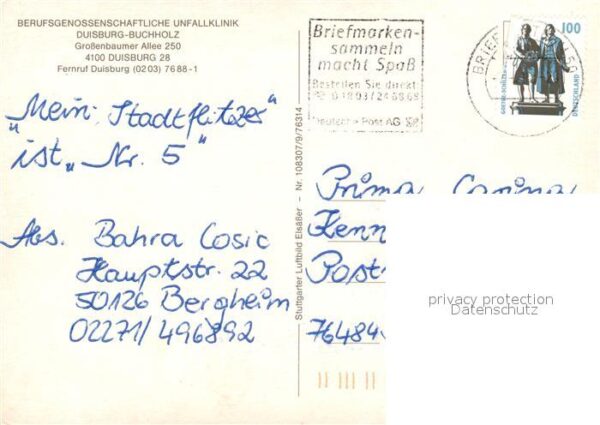 BERUFSGENOSSENSCHAFTLICHE UNFALLKLINIK
DUISBURG-BUCHHOLZ
Großenbaumer Allee 250
4100 DUISBURG 28
Fernruf Duisburg (02 03) 76 88 - 1
„Mein Stadtflitzer"
ist „Nr. 5"
Abs. Bahra Cosic
Hauptstr. 22
50126 Bergheim
02271/496892
Stuttgarter Luftbild Elsäßer – Nr. 108307/9/76314
Briefmarken-
sammeln
macht Spaß
Bestellen Sie direkt
Deutsche Post AG
BRIEF
100
DEUTSCHLAND
Prima Carina
Kenn
Post
76484
privacy protection
Datenschutz